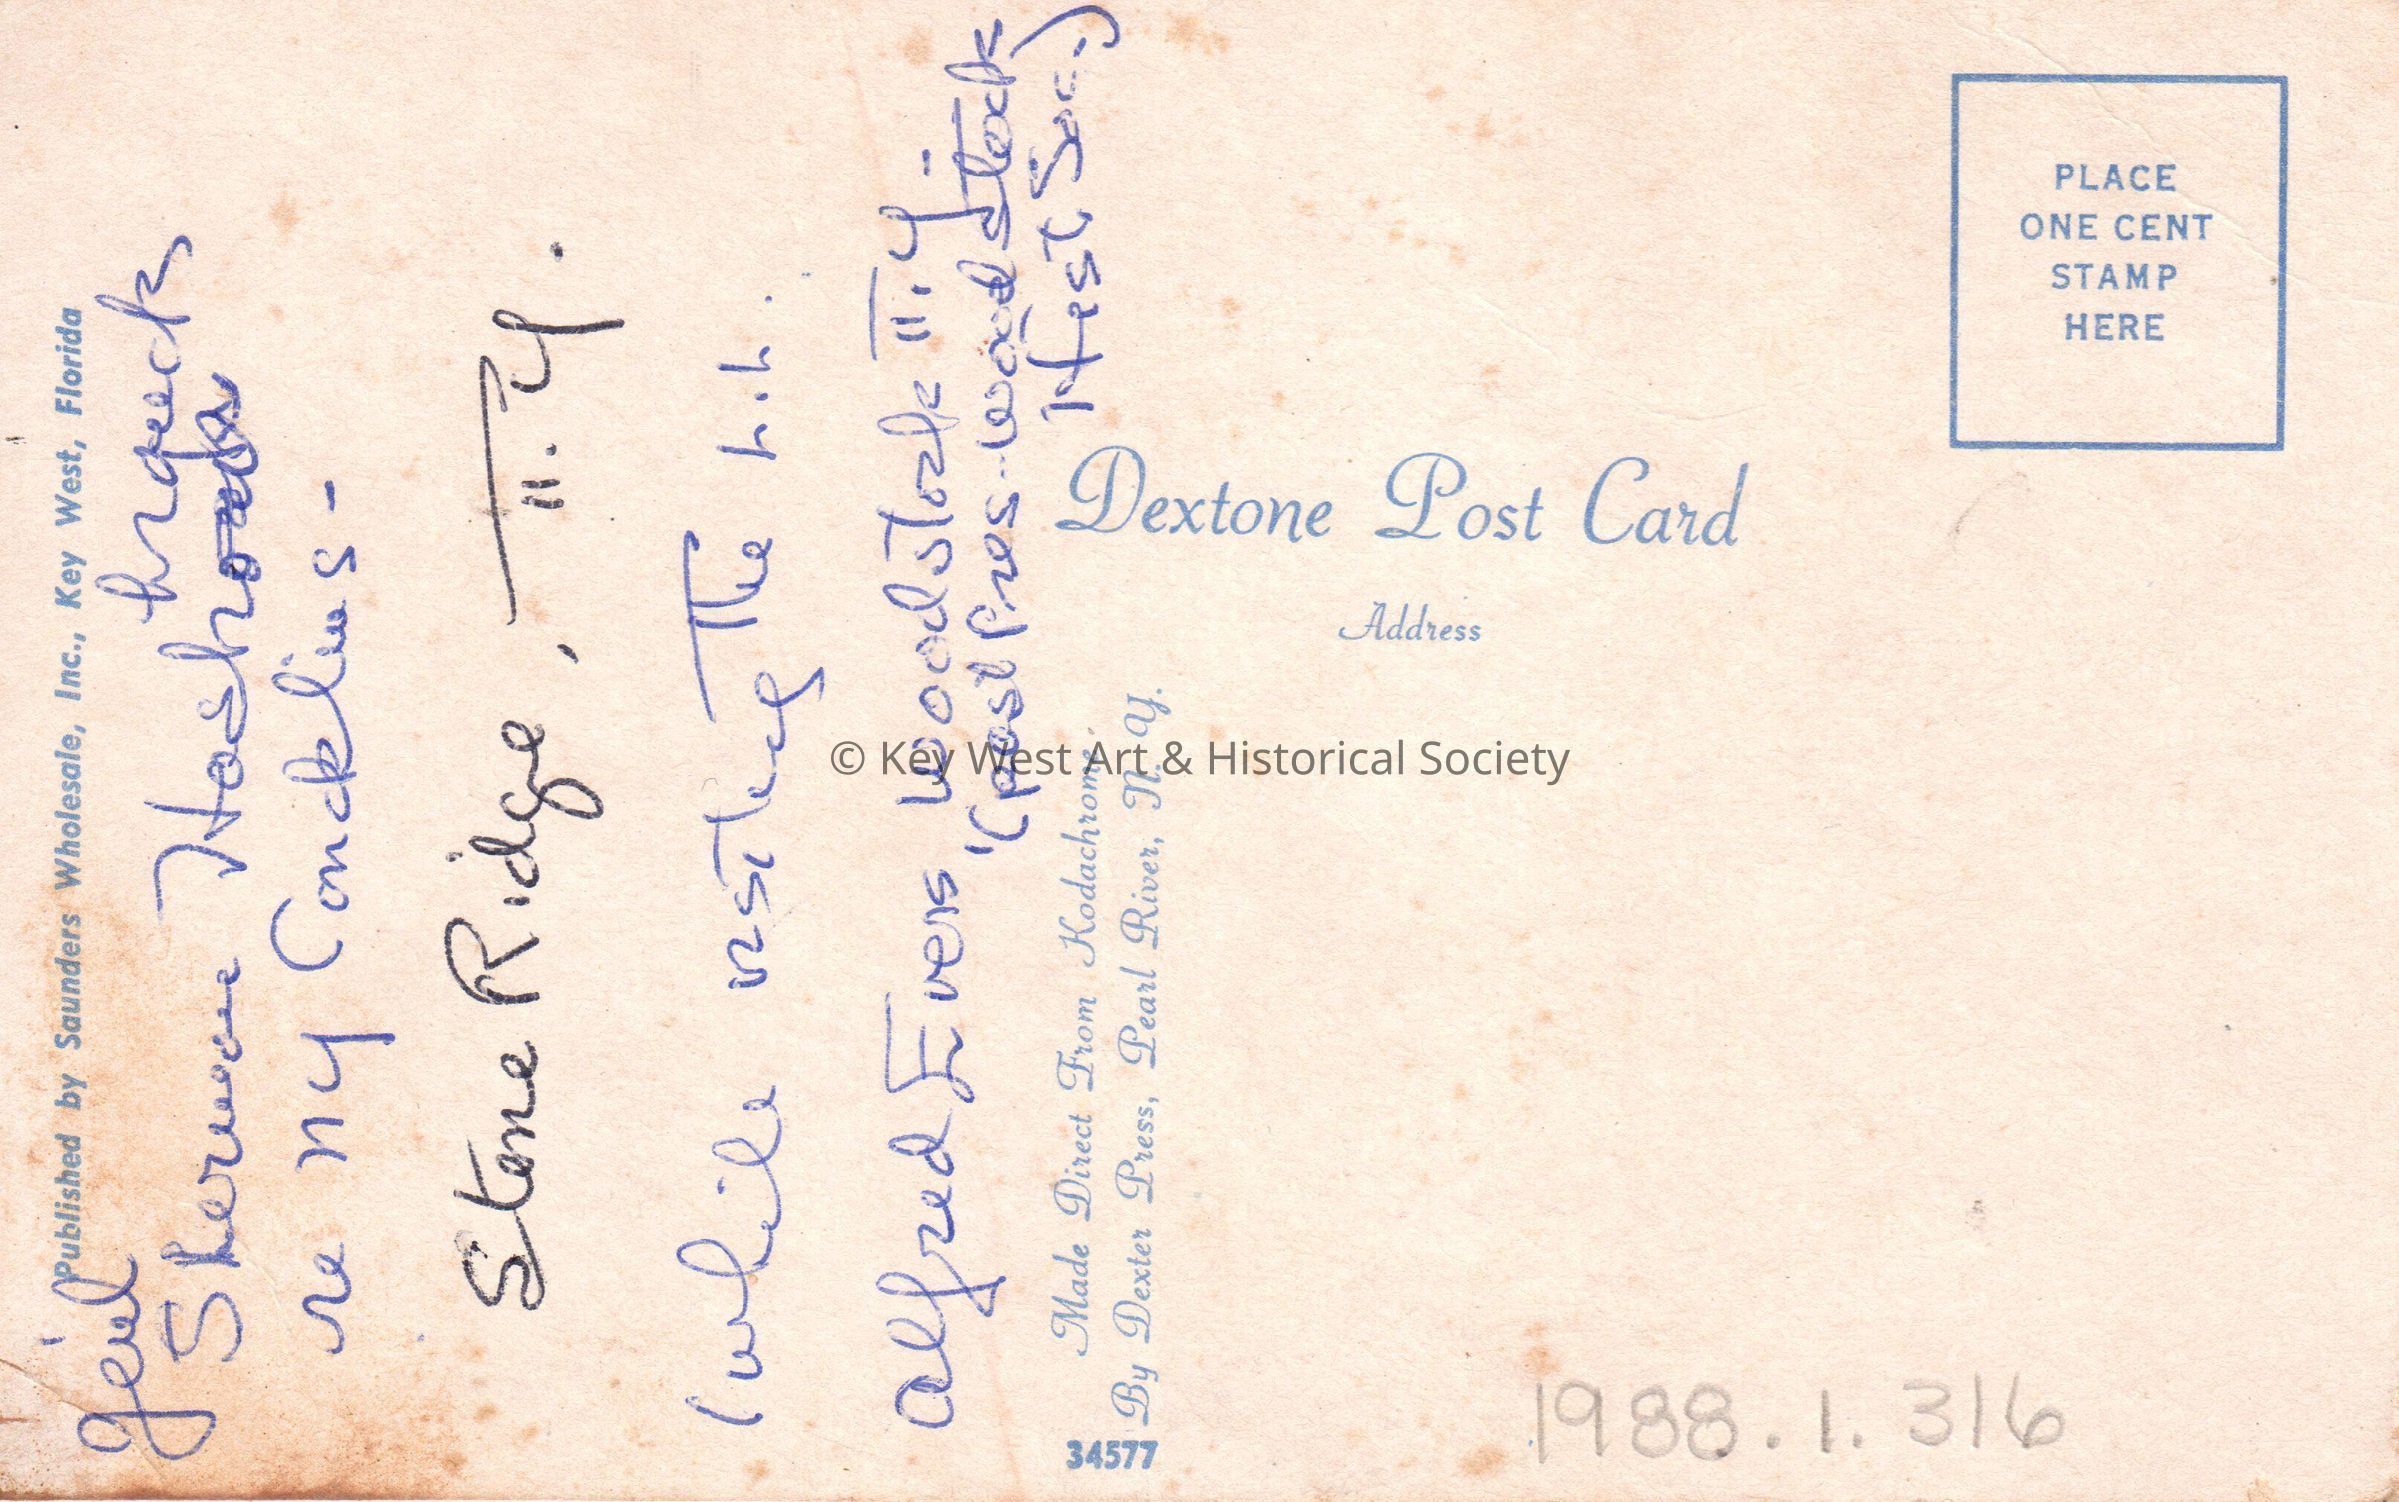 Published by Saunders Wholesale, Inc., Key West, Florida
Sherman Hasbrouck
re NY Conklins -
Stone Ridge, N.Y.
while visiting the
Alfred Evers Woodstock N.Y.
(past pres. Woodstock
Hist Soc.)
Made Direct From Kodachrome.
By Dexter Press, Pearl River, N. Y.
34577
Dextone Post Card
Address
PLACE
ONE CENT
STAMP
HERE
© Key West Art & Historical Society
1988.1.316